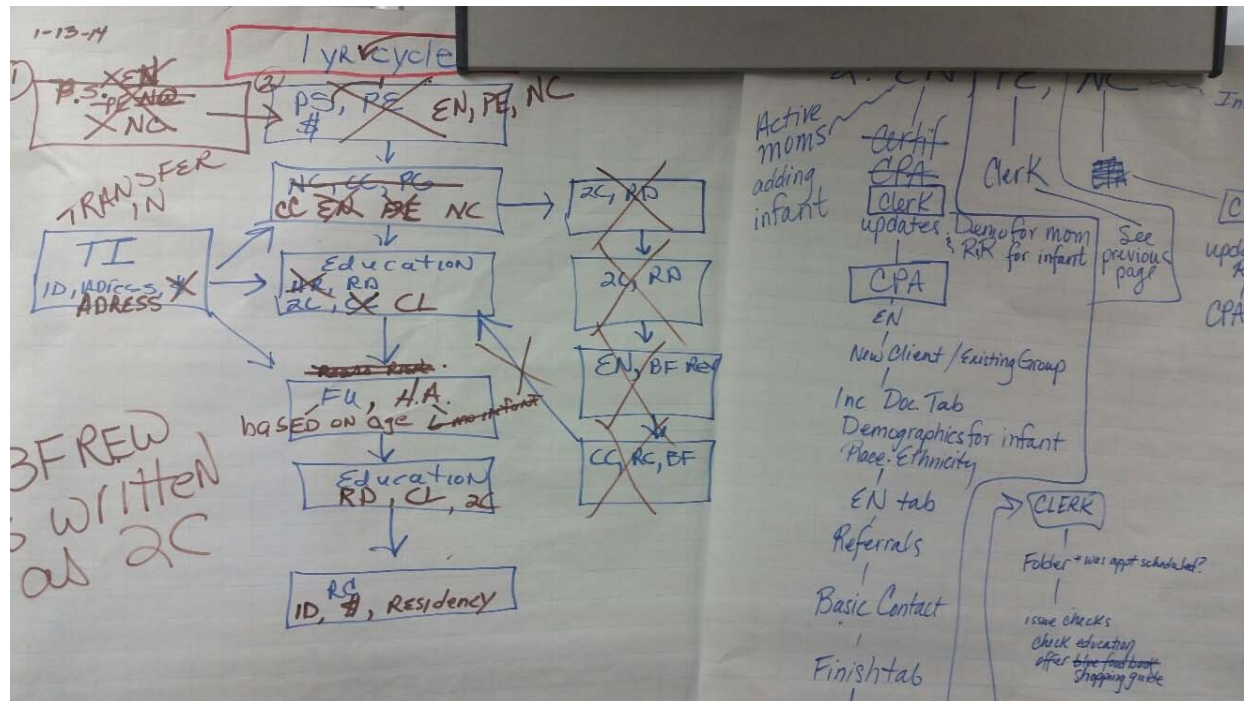 1-13-14
1 yR cycle
①
P.S. XEN
PE
X NC
②
PS, PE
$
EN, PE, NC
TRANSFER
IN
TI
ID, Adress,
ADRESS
NC, CC, PG
CC EN PE NC
Education
RD
2C, CC CL
FU, H.A.
based on age
no infant
Education
RD, CL, 2C
RC
ID, $, Residency
2C, RD
2C, RD
EN, BF Rev
CC, RC, BF
BF REW
written
as 2C
EN, PE, NC
Active
moms
adding
infant
Certif
CPA
Clerk
updates: Demo for mom
& R/R for infant
CPA
EN
New Client / Existing Group
Inc Doc Tab
Demographics for infant
Race-Ethnicity
EN tab
Referrals
Basic Contact
Finish tab
Clerk
See
previous
page
In
C
upda
CPA
CLERK
Folder * was appt scheduled?
issue checks
check education
offer blue food book
shopping guide